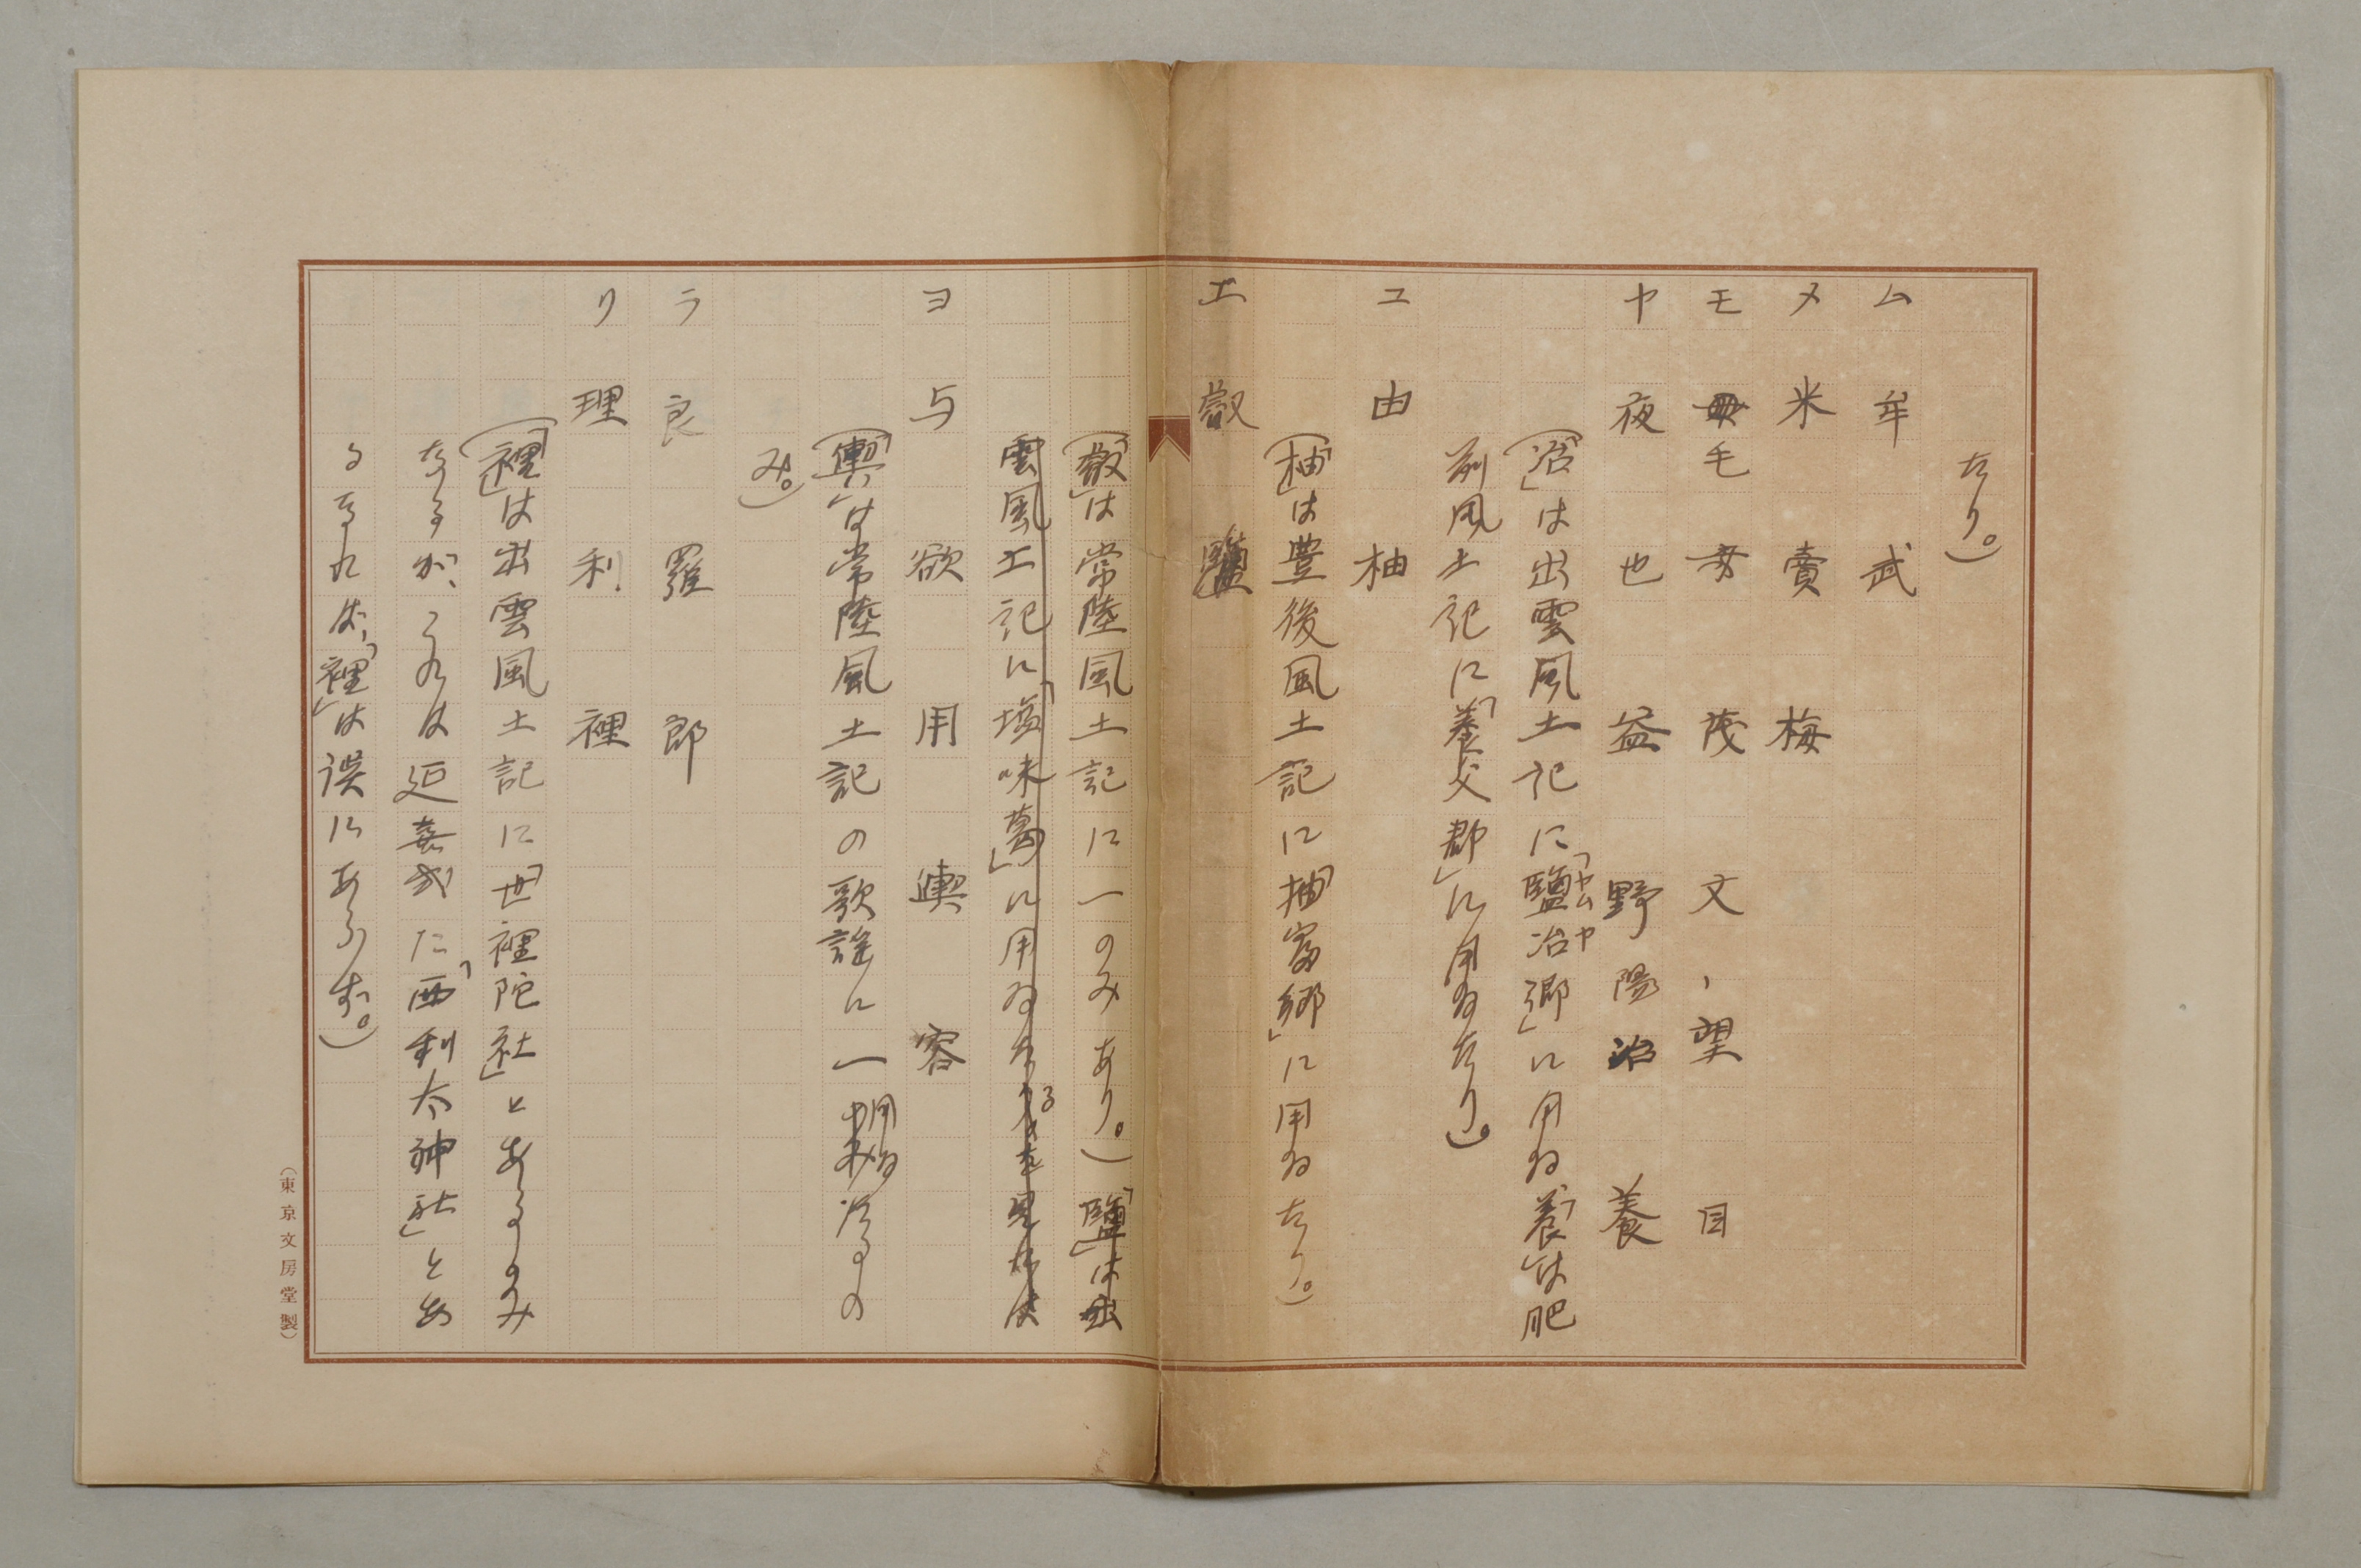 たり。)
ム 牟 武
メ 米 賣 梅
モ 毛 母 茂 文、望 目
ヤ 夜 也 益 野 陽 冶 養
(「冶」は出雲風土記に「鹽冶郷」に用ゐ「養」は肥
ヤムヤ
前風土記に「養父郡」に用ゐたり。)
ユ 由 柚
(「柚」は豊後風土記に「柚富郷」に用ゐたり。)
エ 叡 鹽
(「叡」は常陸風土記に一のみあり。)「鹽」は出
雲風土記に「塩味葛」に用ゐたるを見れば
ヨ 与 欲 用 輿 容
(「輿」は常陸風土記の歌謡に一用ゐたるの
み。)
ラ 良 羅 郎
リ 理 利 裡
(「裡」は出雲風土記に「世裡陀社」とあるのみ
なるが、これは延喜式に「西利太神社」とあ
るなれば、「裡」は誤にあらず。)
(東京文房堂製)